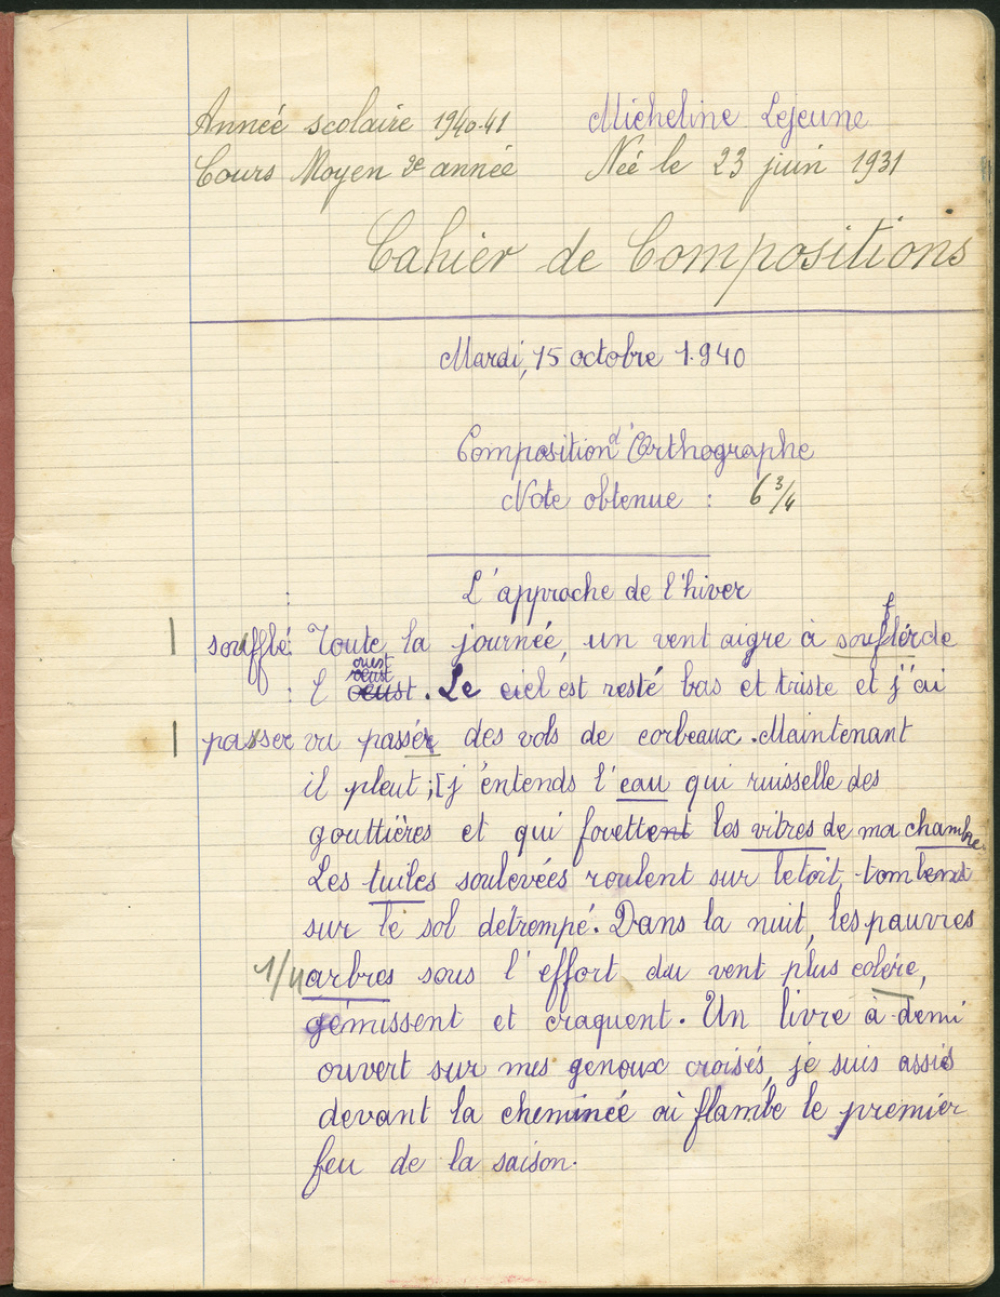 Année scolaire 1940-41 Micheline Lejeune
Cours Moyen 2e année Née le 23 juin 1931
Cahier de Compositions
Mardi, 15 octobre 1.940
Composition d'Orthographe
Note obtenue : 6 3/4
L'approche de l'hiver
soufflé: Toute la journée, un vent aigre à souflér de
: l' ouest. Le ciel est resté bas et triste et j'ai
passer vu passér des vols de corbeaux. Maintenant
il pleut ;[j'entends l'eau qui ruisselle des
gouttières et qui fovettent les vitres de ma chambre.
Les tuiles soulevées roulent sur le toit, tombent
sur le sol détrempé. Dans la nuit, les pauvres
1/4 arbres sous l'effort du vent plus colére,
gémissent et craquent. Un livre à-demi
ouvert sur mes genoux croisés, je suis assis
devant la cheminée où flambe le premier
feu de la saison.